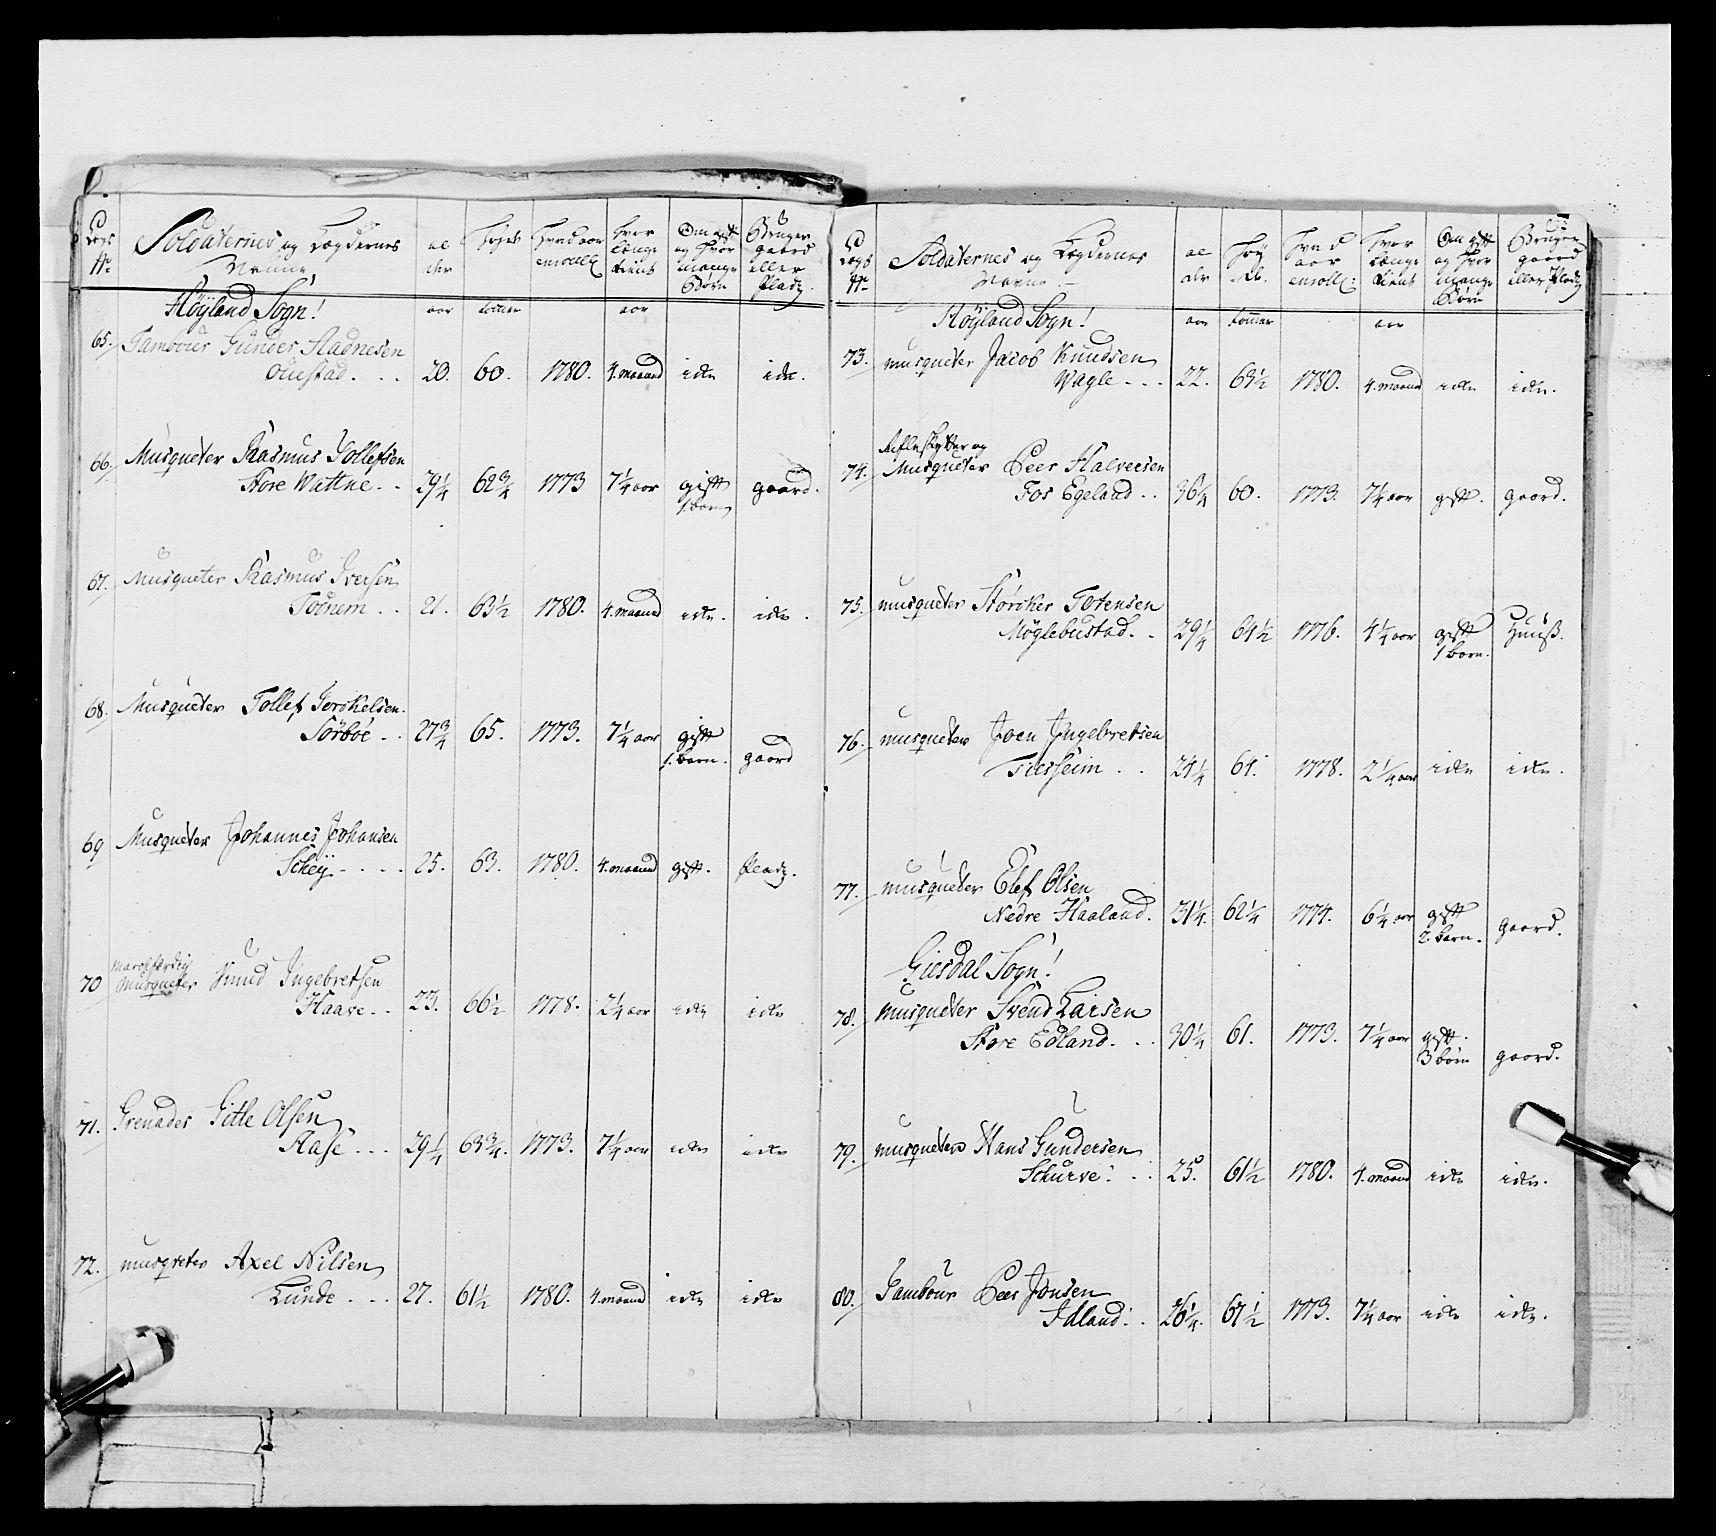 Legs No | Soldaternes og Lægdernes Nafne | alder | Høyde | hvad aar enroll: | hvor længe tient | Om gift og hvor mange Børn | Bruger gaard eller Pladz.
Höyland Sogn! | aar | tommer | aar
65. Tambour Gunder Aadnesen
Ouestad. | 20. | 60. | 1780. | 4. maaned | icke | icke.
66. Musqueter Rasmus Tollefsen
Store Wattne. | 29¼ | 62¾ | 1773 | 7¼ aar | gift 1. barn | gaard.
67. Musqueter Rasmus Iversen
Tornem. | 21. | 63½ | 1780. | 4. maaned | icke. | icke.
68. Musqueter Tollef Torckelsen.
Sörböe. | 27¾ | 65. | 1773. | 7¼ aar | gift 1. barn. | gaard
69 Musqueter Johannes Johansen
Schey. | 25. | 63. | 1780. | 4. maaned | gift. | Pladz.
70 Marchfærdig
Musqueter Knud Ingebretsen
Haave. | 23. | 66½ | 1778. | 2¼ aar | icke | icke
71. Grenader Gitle Olsen
Aase. | 29¼ | 63¾. | 1773. | 7¼ aar | icke | icke
72. musqveter Axel Nilsen
Lunde. | 27. | 61½ | 1780. | 4. maaned | icke | icke
Legs No | Soldaternes og Lægdernes Navne. | alder | Høyde. | hvad aar enroll: | hvor længe tient | Om gift og hvor mange Börn | Bruger gaard eller Pladz
Höyland Sogn! | aar | tommer | aar
73. musqueter Jacob Knudsen
Wagle. | 22. | 63½ | 1780. | 4. maaned | icke | icke.
74. Refleskytter og
Musqueter Peer Halversen
Fos Egeland. | 36¼ | 60. | 1773. | 7¼ aar | gift. | gaard.
75. musqueter Störcker Totensen
Möglebustad. | 29¼ | 64½ | 1776. | 4¼ aar | gift 1 barn. | Huuss.
76. musqueter Joen Ingebretsen
Tiessem. | 24¼ | 64. | 1778. | 2¼ aar | icke | icke.
77. musqueter Elef Olsen
Nedre Haaland. | 31¼ | 62¼ | 1774. | 6¼ aar | gift 2 barn. | gaard.
Giesdal Sogn!
78. Musqueter Svend Larsen
Store Edland. | 30¼ | 61. | 1773. | 7¼ aar | gift. 3 börn | gaard.
79. musqueter Hans Gundersen
Schurve: | 25. | 61½ | 1780. | 4. maaned | icke | icke.
80. Tambour Peer Jonsen
Idland: | 26¼. | 67½ | 1773. | 7¼ aar | icke | icke.